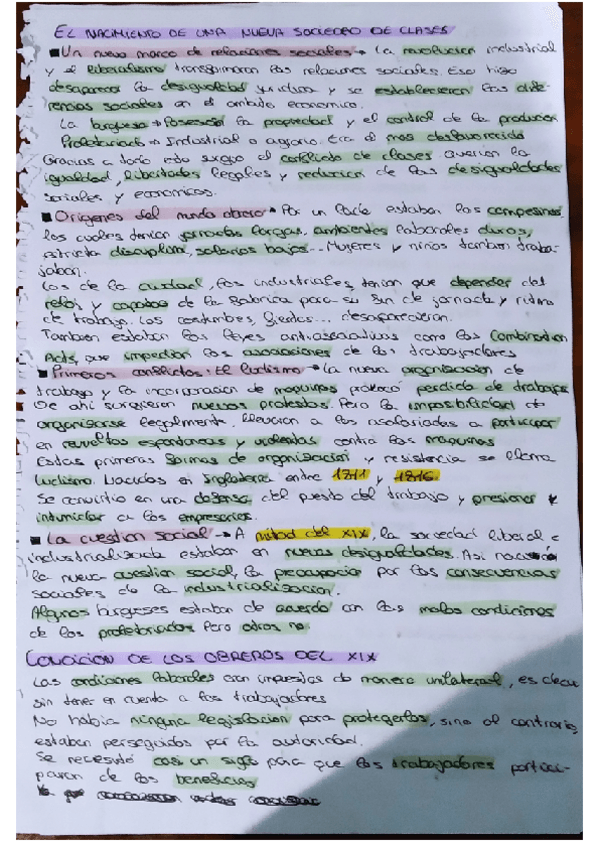 EL NACIMIENTO DE UNA NUEVA SOCIEDAD DE CLASES
■ Un nuevo marco de relaciones sociales → La revolucion industrial
y el liberalismo transformaron las relaciones sociales. Eso hizo
desaparecer la desigualdad juridica y se establecieron las dife-
rencias sociales en el ambito economico.
La burguesia → Poseedor la propiedad y el control de la produccion
Proletariado → Industrial o agrario. Era el mas desfavorecido
Gracias a todo esto surgio el conflicto de clases. Querian la
igualdad, libertades legales y reduccion de las desigualdades
sociales y economicos.
■ Origenes del mundo obrero → Por un lado estaban los campesinos,
los cuales tenian jornadas largas, ambientes laborales duros,
estricta disciplina, salarios bajos... Mujeres y niños tambien traba-
jaban.
Los de la ciudad, los industriales, tenian que depender del
reloj y capataz de la fabrica para su fin de jornada y ritmo
de trabajo. Las costumbres, fiestas... desaparecieron.
Tambien estaban las leyes antiasociativas como las Combination
Acts, que impedian las asociaciones de los trabajadores
■ Primeros conflictos: El ludismo → La nueva organizacion de
trabajo y la incorporacion de maquinas provocó perdida de trabajo
De ahi surgieron nuevas protestas. Pero la imposibilidad de
organizarse legalmente, llevaron a los asalariados a participar
en revueltas espontaneas y violentas contra las maquinas
Estas primeras formas de organizacion y resistencia se llama
Ludismo. Nacidas en Inglaterra entre 1811 y 1816.
Se convirtio en una defensa del puesto del trabajo y presionar e
intimidar a los empresarios.
■ La cuestion social → A mitad del XIX, la sociedad liberal e
industrializada estaban en nuevas desigualdades. Asi nacio
la nueva cuestion social, la preocupacion por las consecuencias
sociales de la industrializacion.
Algunos burgueses estaban de acuerdo con las malas condiciones
de los proletariados pero otros no.
CONDICION DE LOS OBREROS DEL XIX
Las condiciones laborales eran impuestas de manera unilateral, es decir
sin tener en cuenta a los trabajadores
No habia ninguna legislacion para protegerlos, sino al contrario,
estaban perseguidos por la autoridad.
Se necesitó casi un siglo para que los trabajadores partici-
paran de los beneficios